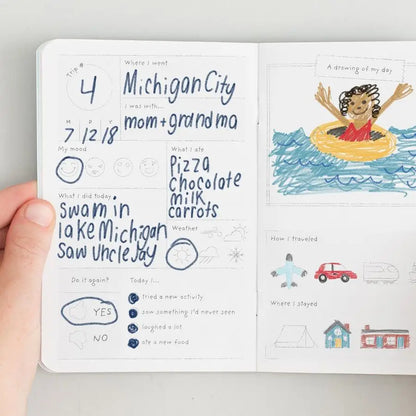 Trip #
4
Where I went
Michigan City
I was with...
mom + grandma
M D Y
7 12 18
My mood
What I ate
Pizza
chocolate
milk
carrots
What I did today
Swam in
lake Michigan
Saw Uncle Jay
Weather
Do it again?
YES
NO
Today I...
tried a new activity
saw something I'd never seen
laughed a lot
ate a new food
A drawing of my day
How I traveled
Where I stayed